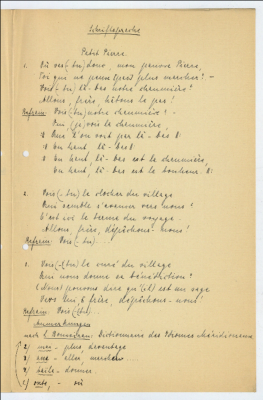 Schriftsprache
Petit Pierre
1. Où vas(-tu) donc, mon pauvre Pierre,
Toi qui ne peux (pas) plus marcher? -
Vois(-tu) là-bas notre chaumière?
Allons, frère, hâtons le pas!
Refrain: Vois(-tu) notre chaumière! -
Oui, (je) vois la chaumière,
Que l'on voit par là-bas
En haut, là-bas
En haut, là-bas est la chaumière,
En haut, là-bas est le bonheur
2. Vois(-tu) le clocher du village
Qui semble s'avancer vers nous?
C'est ici le terme du voyage
Allons, frère, dépêchons-nous!
Refrain: Vois(-tu) ...!
3. Vois(-tu) le curé du village
Qui nous donne sa bénédiction?
(Nous) pouvons dire qu'(il) est un sage
Vers lui, frère, dépêchons-nous!
Refrain: Vois(-tu)...!
Anmerkungen
nach Dictionnaire des Idiomes Méridionaux
plus, davantage
aller, marcher...
donner
où